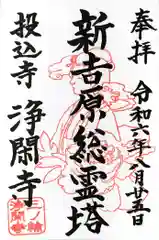 奉拝
令和六年八月廿五日
新吉原総霊塔
投込寺
浄閑寺